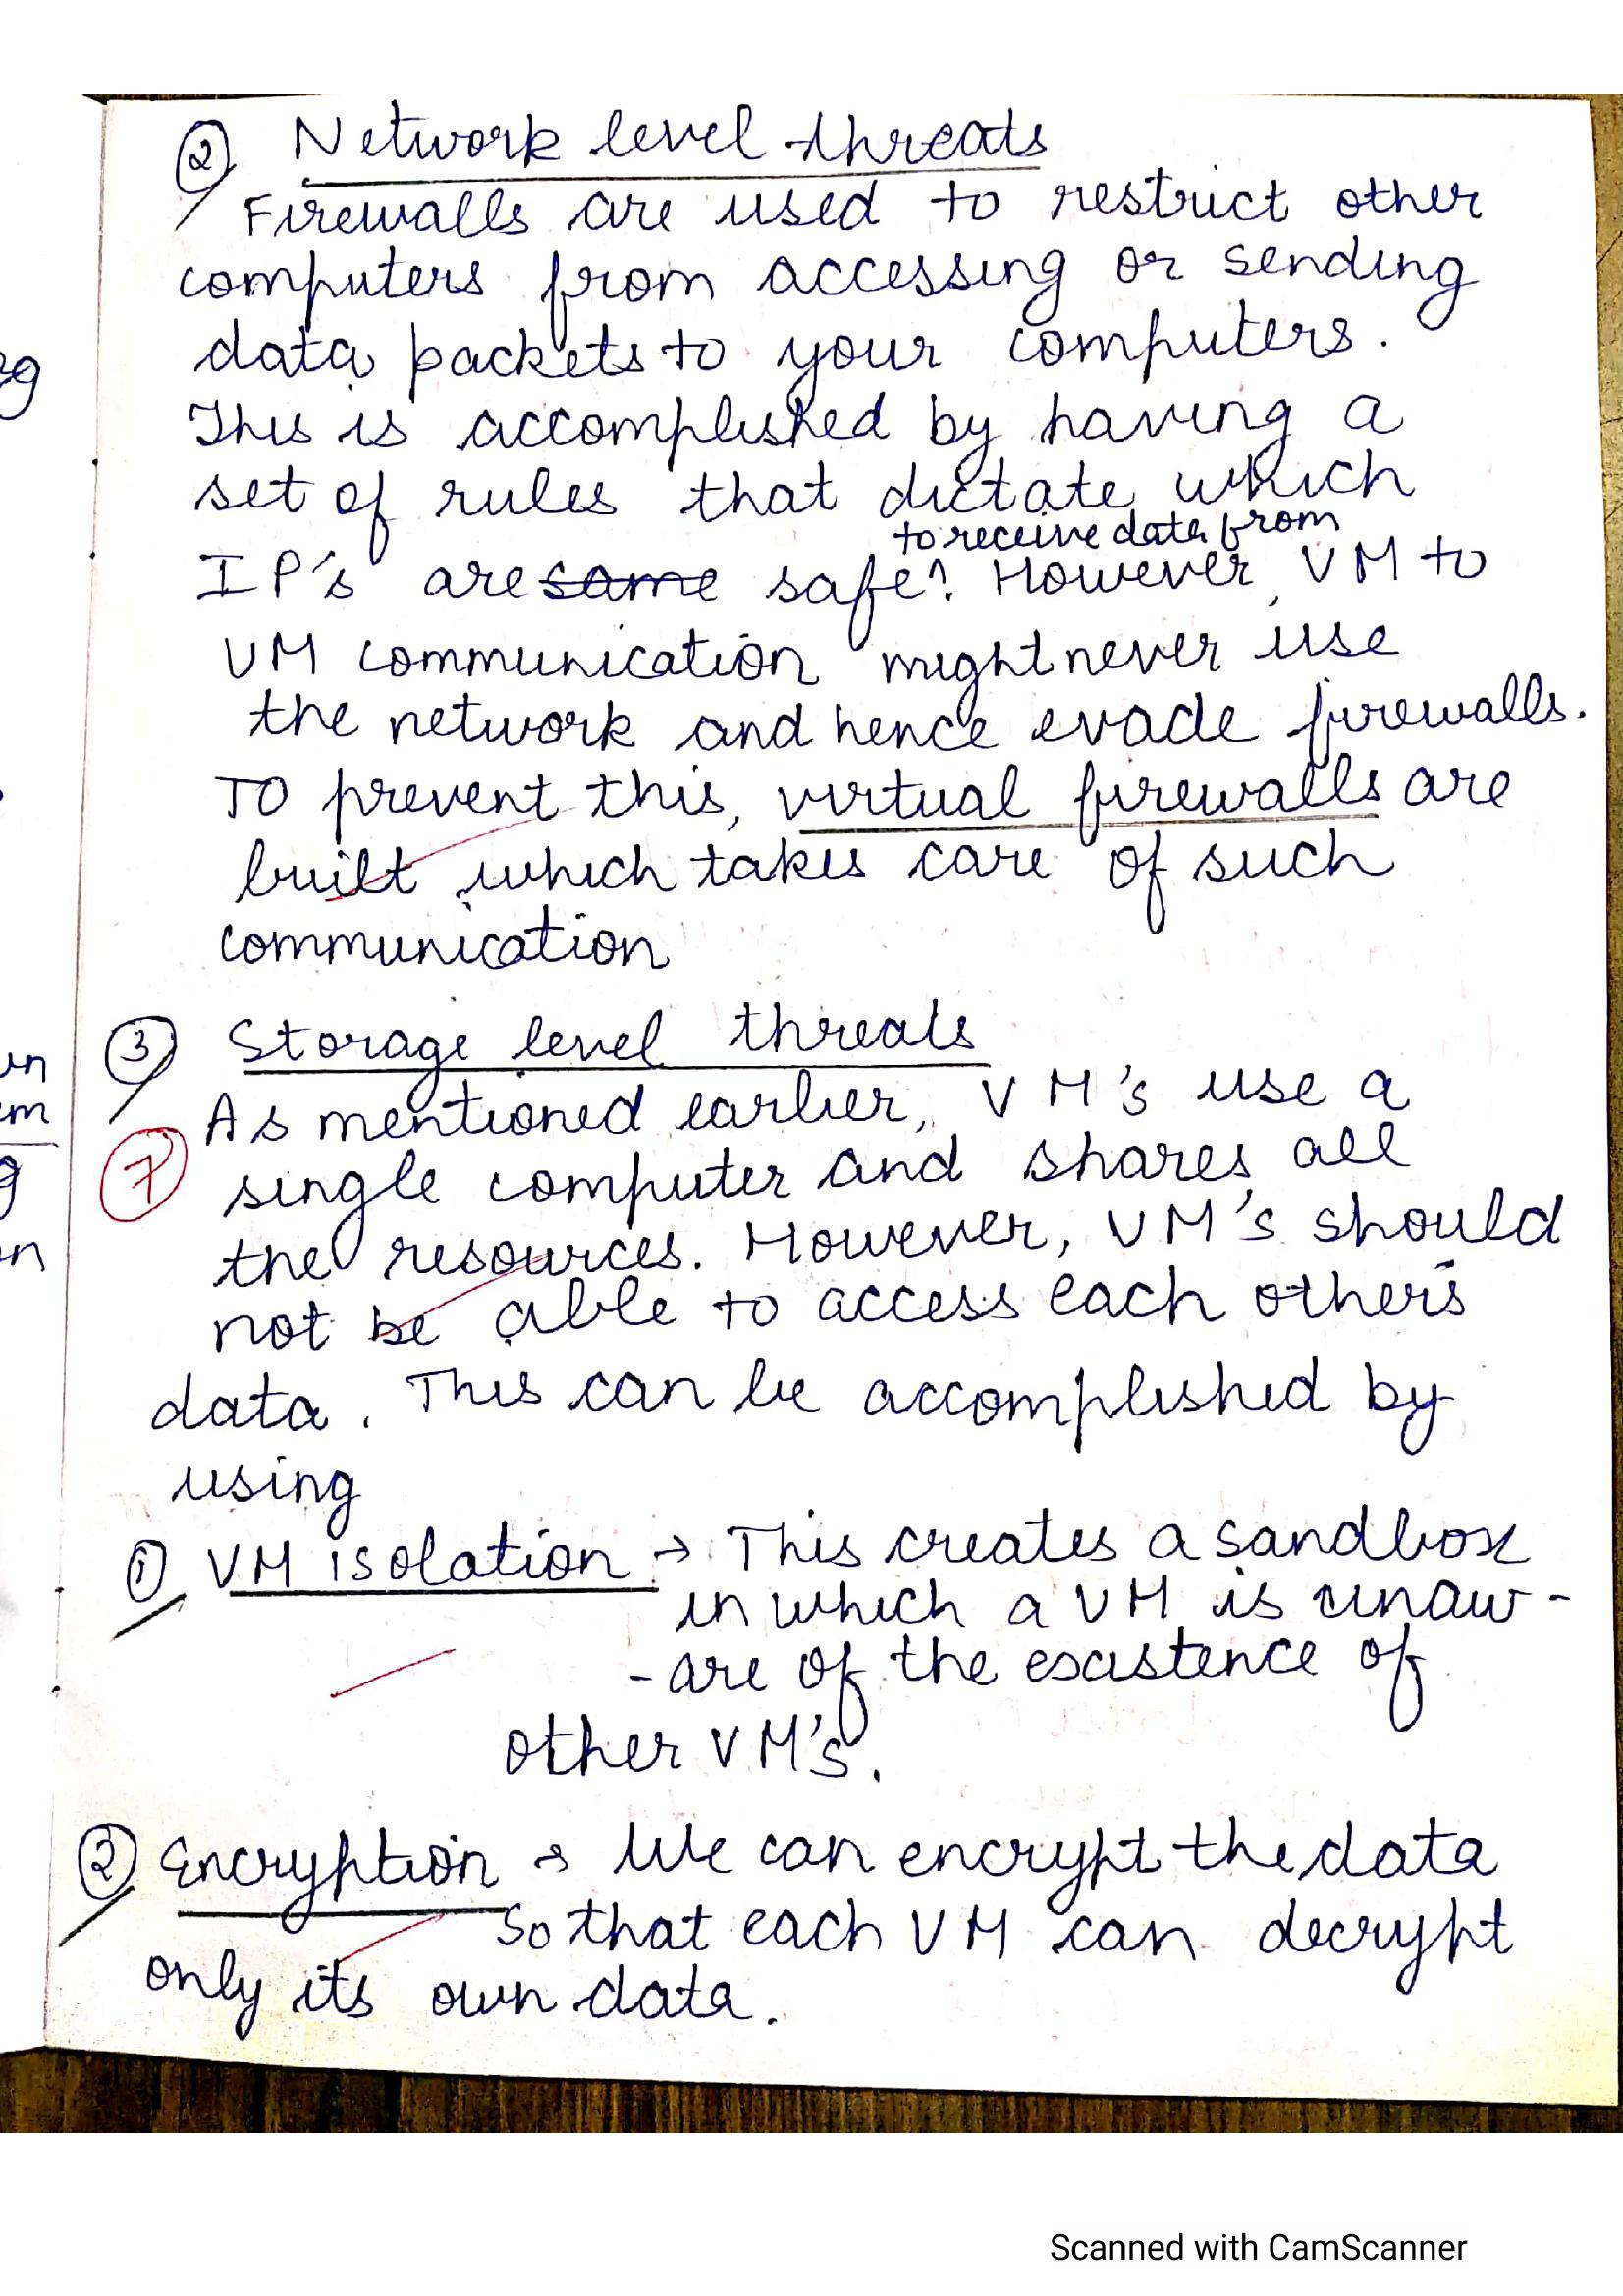 ② Network level threats
Firewalls are used to restrict other
computers from accessing or sending
data packets to your computers.
This is accomplished by having a
set of rules that dictate which
to receive data from
IP's are same safe^. However, VM to
VM communication might never use
the network and hence evade firewalls.
To prevent this, virtual firewalls are
built which takes care of such
communication
③ Storage level threats
As mentioned earlier, VM's use a
⑦ single computer and shares all
the resources. However, VM's should
not be able to access each others
data. This can be accomplished by
using
① VM isolation → This creates a sandbox
in which a VM is unaw-
-are of the existence of
other VM's.
② Encryption → We can encrypt the data
So that each VM can decrypt
only its own data.
Scanned with CamScanner